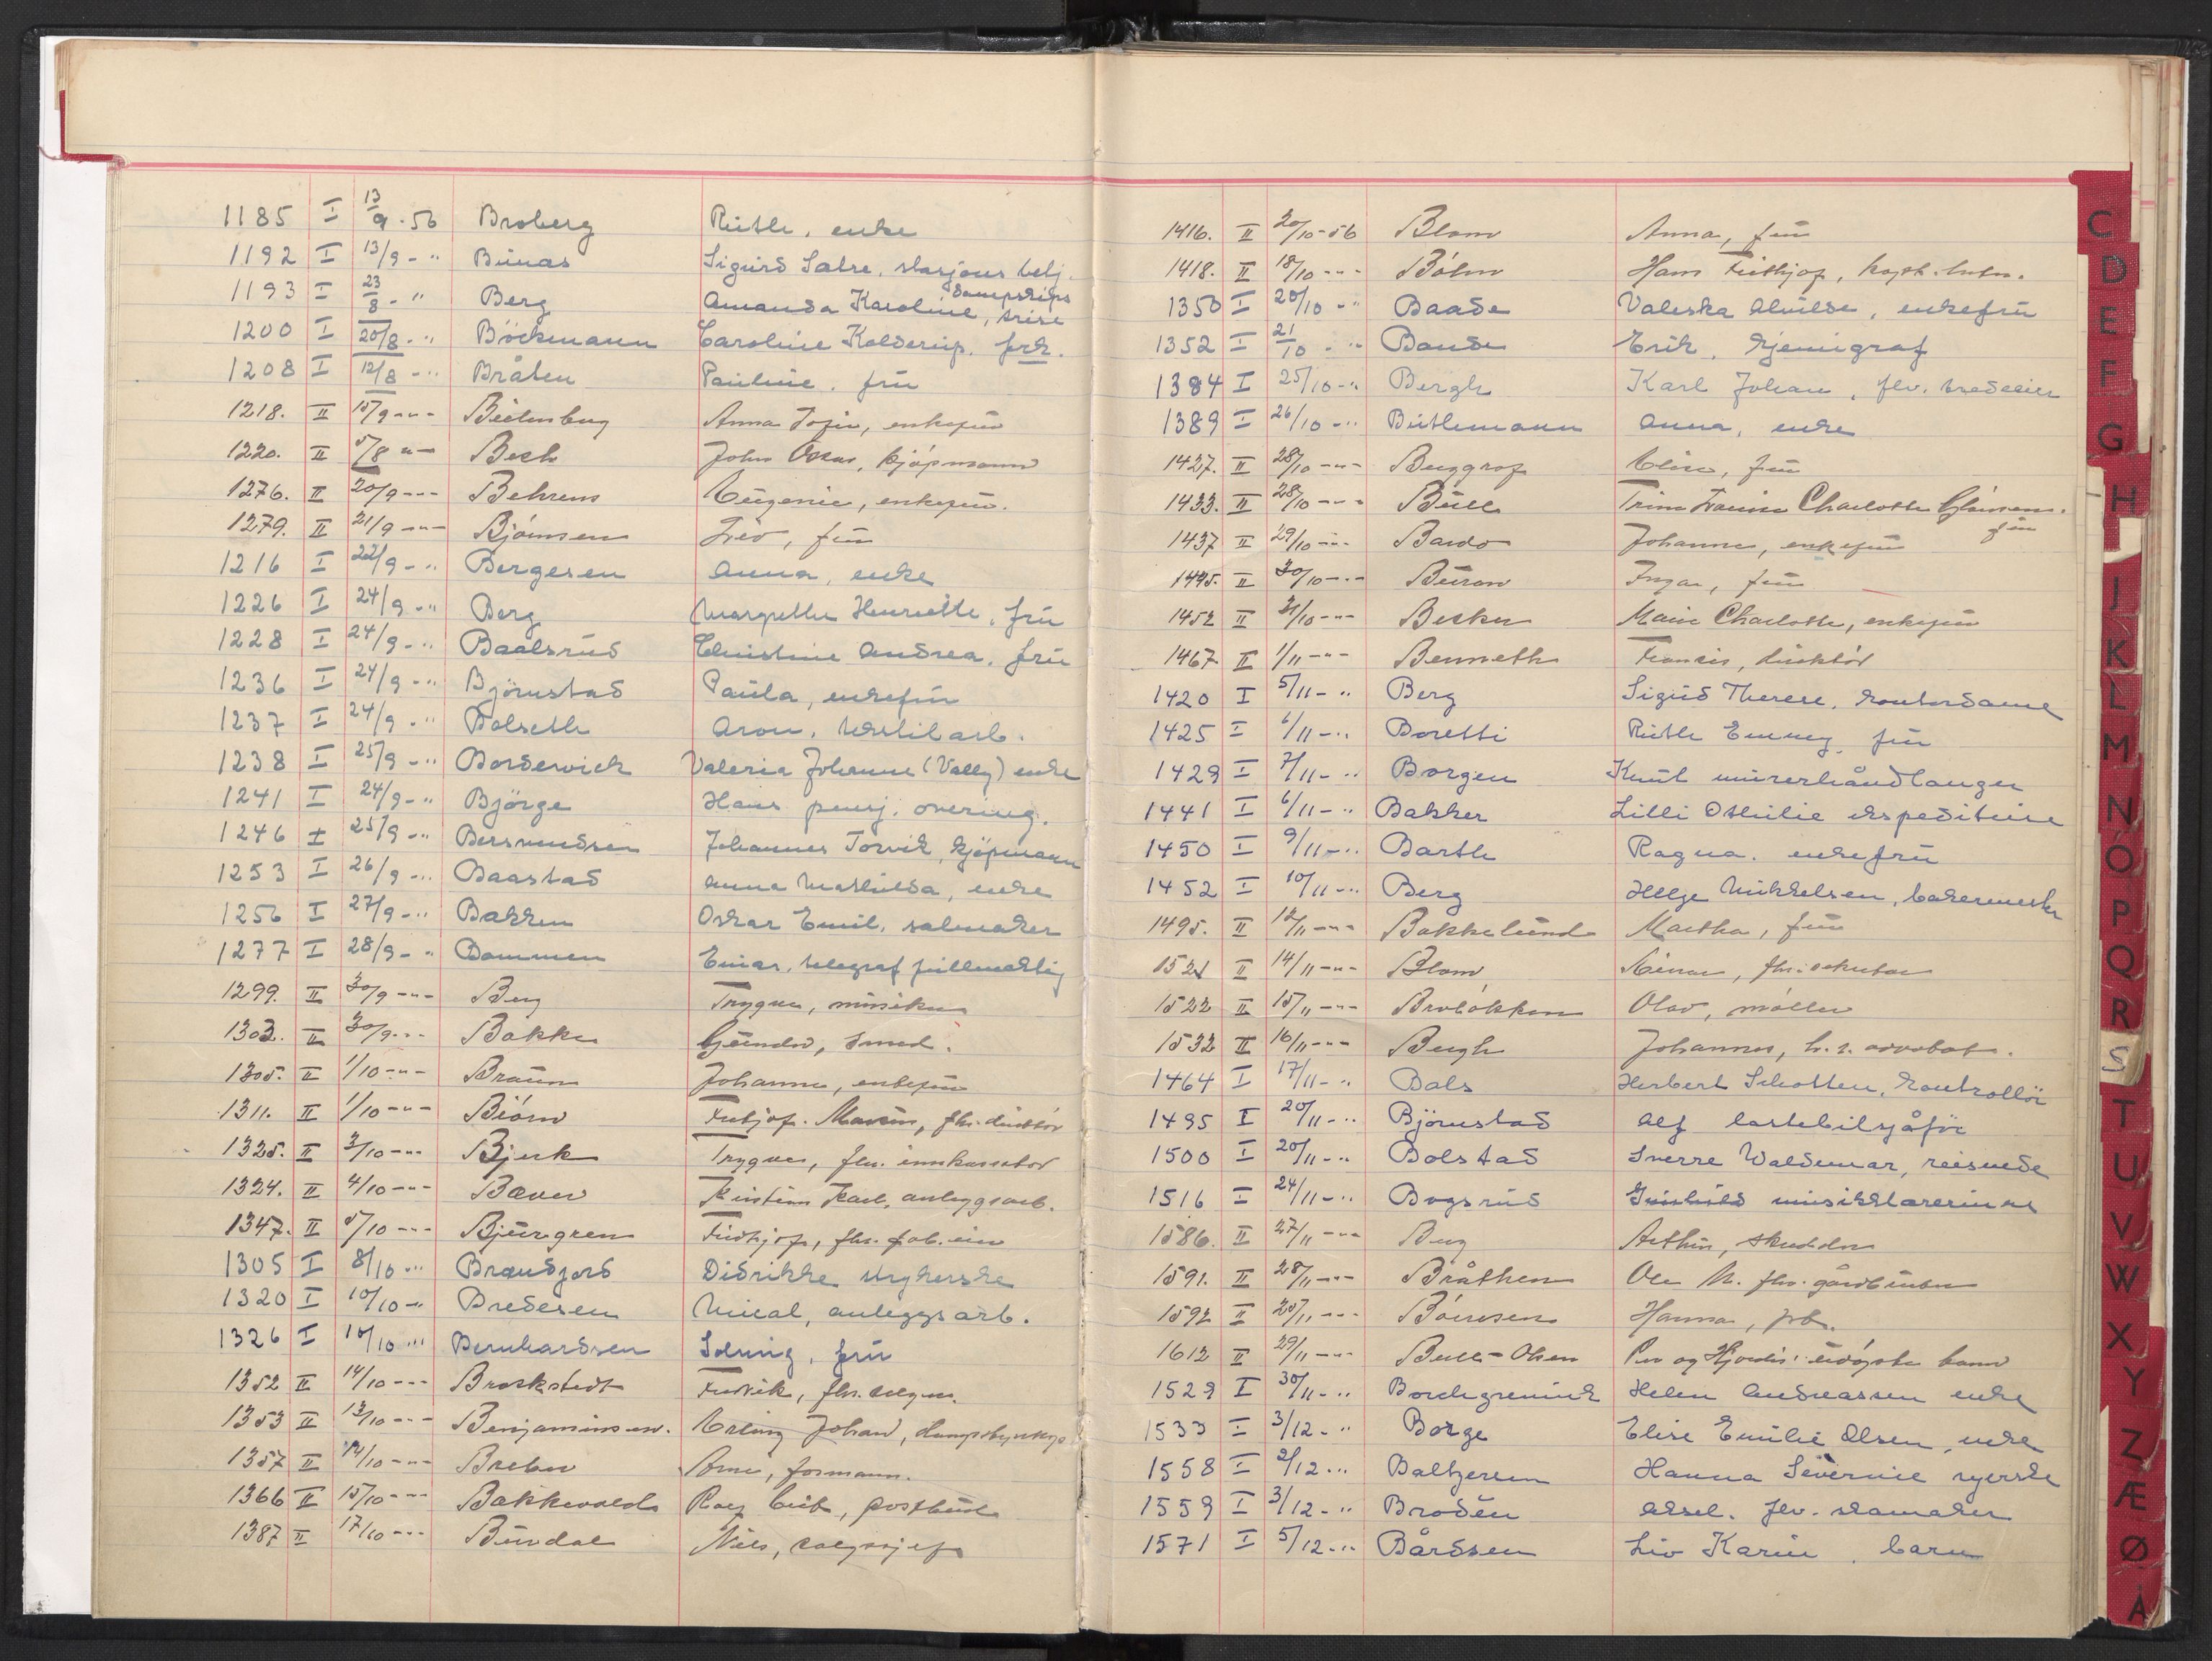 1185 I 13/9-56 Broberg Ruth, enke
1192 I 13/9-" Bunas Sigurd Salve, stasjons betj.
1193 I 23/8-" Berg Amanda Karoline, dampskips
1200 I 20/8-" Böckmann Caroline Kolderup, frk.
1208 I 12/8-" Bråten Pauline, fru
1218. II 15/9-"- Anna Sofie, enkefru
1220. II 5/8-"- Beck John Oscar, kjøpmann
1276. II 20/9-"- Behrens Eugenie, enkefru.
1279. II 21/9-"- Bjørnsen Liv, fru
1216 I 22/9-" Bergesen Anna, enke
1226 I 24/9-" Berg Margrethe Henriette, fru
1228 I 24/9-" Baalsrud Christine Andrea, fru
1236 I 24/9-" Björnstad Paula, enkefru
1237 I 24/9-" Bolseth Aron, tekstilarb.
1238 I 25/9-" Borderwick Valeria Johanne (Vally) enke
1241 I 24/9-" Björge Hans pensj. overing.
1246 I 25/9-" Bersvendsen Johannes Torvik, kjöpmann
1253 I 26/9-" Baastad Anna Mathilda, enke
1256 I 27/9-" Bakken Oskar Emil, salmaker
1277 I 28/9-" Bommen Einar, telegraf fullmektig
1299. II 30/9-"- Berg Trygve, musiker
1303. II 30/9-"- Bakke smed.
1305. II 1/10-"- Braun Johanne, enkefru
1311. II 1/10-"- Biørn Fritjof. Marius, fhv. direktør
1325. II 3/10-"- Bjerk Trygve, fhv. innkassator
1324. II 4/10-"- Karl, anleggsarb.
1347. II 5/10-"- Bjurgren Fridtjof, fhv. fab.eier
1305 I 8/10-" Brandfjord Didrikke strykerske
1320 I 10/10-" Bredesen anleggsarb.
1326 I 10/10-" Bernhardsen Solveig, fru
1352 II 14/10-"- Brockstedt Fredrik, fhv.
1353 II 13/10-"- Benjaminsen. Erling Johan,
1357 II 14/10-"- Arne, formann.
1366 II 15/10-"- Bakkevold Roy Leif, postbud
1387 II 17/10-"- Burdal Nils, salgssjef
1416. II 20/10-56 Blom Anna, fru
1418. II 18/10-"- Bøhn Hans Frithjof,
1350 I 20/10-" Baade Valeska Alvilde, enkefru
1352 I 21/10-" Bande Erik, kjemigraf
1384 I 25/10-" Bergh Karl Johan, fhv.
1389 I 26/10-" Büthemann Anna, enke
1427. II 28/10-"- Berggraf Elise, fru
1433. II 28/10-"- Bull Charlotte
fru
1437 II 29/10-"- Bardo Johanne, enkefru
1445. II 30/10-"- Burow Inga, fru
1452 II 31/10-"- Becker Marie Charlotte, enkefru
1467. II 1/11-"- Benneth Francis, direktør
1420 I 5/11-" Berg Sigrid Therese, kontordame
1425 I 6/11-" Boretti Ruth Emmy, fru
1429 I 7/11-" Borgen Knut murerhåndlanger
1441 I 6/11-" Bakker Lilli Othilie ekspeditrise
1450 I 9/11-" Barth Ragna. enkefru
1452 I 10/11-" Berg Helge Mikkelsen, bakermester
1495. II 12/11-"- Bakkelund Martha, fru
1521 II 14/11-"- Blom Einar,
1522 II 15/11-"- Brobakken Olav, møller
1532 II 16/11-"- Bergh Johannes, h.r. advokat.
1464 I 17/11-" Bals Herbert Schotten, kontrollör
1495 I 20/11-" Björnstad Alf lastebilsjåför
1500 I 20/11-" Bolstad Sverre Waldemar, reisende
1516 I 24/11-" Bogsrud Gunhild musikklærerinne
1586. II 27/11-"- Berg Arthur, skredder
1591. II 28/11-"- Bråthen Ole M. fhv. gårdbruker
1592 II 20/11-"- Hanna, frk.
1612 II 29/11-"- Bull-Olsen Per og Hjørdis' udøpte barn
1529 I 30/11-" Borchgrevink Helen Andreassen enke
1533 I 3/12-" Borge Elise Emilie Olsen, enke
1558 I 2/12-" Baltzersen Hanna Severine syerske
1559 I 3/12-" Brodén Aksel. fhv. skomaker
1571 I 5/12-" Bårdsen Liv Karin, barn
C
D
E
F
G
H
I
K
L
M
N
O
P
Q
R
S
T
U
V
W
X
Y
Z
Æ
Ø
Å